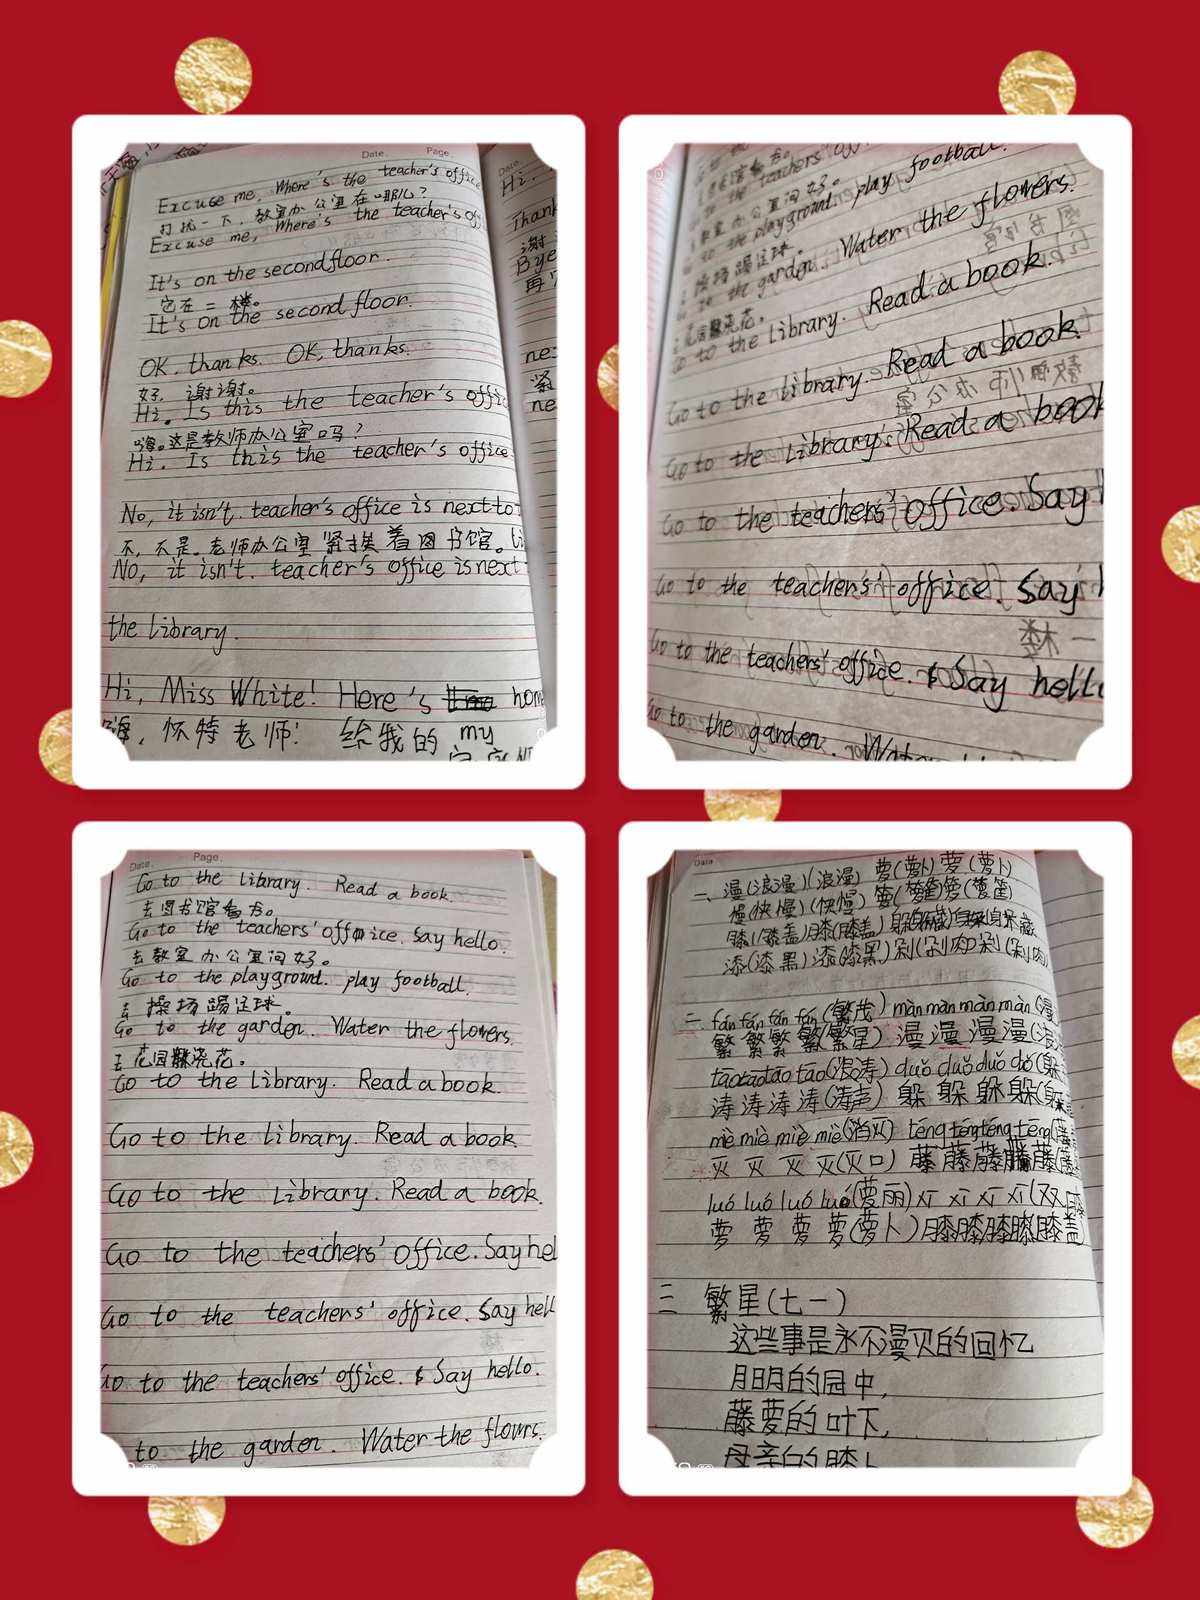 Date. Page.
Excuse me, Where's the teacher's office
打扰一下，教室办公室在哪儿？
Excuse me, Where's the teacher's of
It's on the second floor.
它在二楼。
It's on the second floor.
OK, thanks. OK, thanks.
好，谢谢。
Hi. Is this the teacher's office
嗨。这是教师办公室吗？
Hi. Is this the teacher's office
No, it isn't. teacher's office is next to
不，不是。老师办公室紧挨着图书馆。
No, it isn't. teacher's office is next
the library.
Hi, Miss White! Here's hom
my
嗨，怀特老师！给我的
Date.
Hi.
Thank
谢
Bye
再
nex
紧
ne
play football.
the playground.
操场踢足球
to the garden. Water the flowers.
花园 浇花。
Go to the library. Read a book.
Go to the library. Read a book.
Go to the library. Read a book
Go to the teachers' office. Say h
Go to the teachers' office. Say h
Go to the teachers' office. Say hello
Go to the garden. Water
Date. Page.
Go to the library. Read a book.
去图书馆看书。
Go to the teachers' office. Say hello.
去教室办公室问好。
Go to the playground. play football.
去操场踢足球。
Go to the garden. Water the flowers.
去花园 浇花。
Go to the library. Read a book.
Go to the library. Read a book
Go to the library. Read a book.
Go to the teachers' office. Say hel
Go to the teachers' office. Say hell
Go to the teachers' office. Say hello.
to the garden. Water the flowrs.
Date
一、漫(浪漫)(浪漫) 萝(萝卜)萝(萝卜)
慢(快慢)(快慢) 箩(箩筐)箩(箩筐)
膝(膝盖)膝(膝盖) 躲(躲藏)
漆(漆黑)漆(漆黑) 剁(剁肉)剁(剁肉
二 fán fán fán fán (繁茂) màn màn màn màn (漫
繁 繁 繁 繁(繁星) 漫 漫 漫 漫(浪
tāo tāo tāo tāo(浪涛) duǒ duǒ duǒ duǒ(躲
涛 涛 涛 涛(涛声) 躲 躲 躲 躲(躲
miè miè miè miè(消灭) téng téng téng téng(藤
灭 灭 灭 灭(灭口) 藤 藤 藤 藤(藤
luó luó luó luó(萝丽) xī xī xī xī(双膝
萝 萝 萝 萝(萝卜) 膝膝膝膝(膝盖)
三 繁星(七一)
这些事是永不漫灭的回忆
月明的园中，
藤萝的叶下，
母亲的膝上